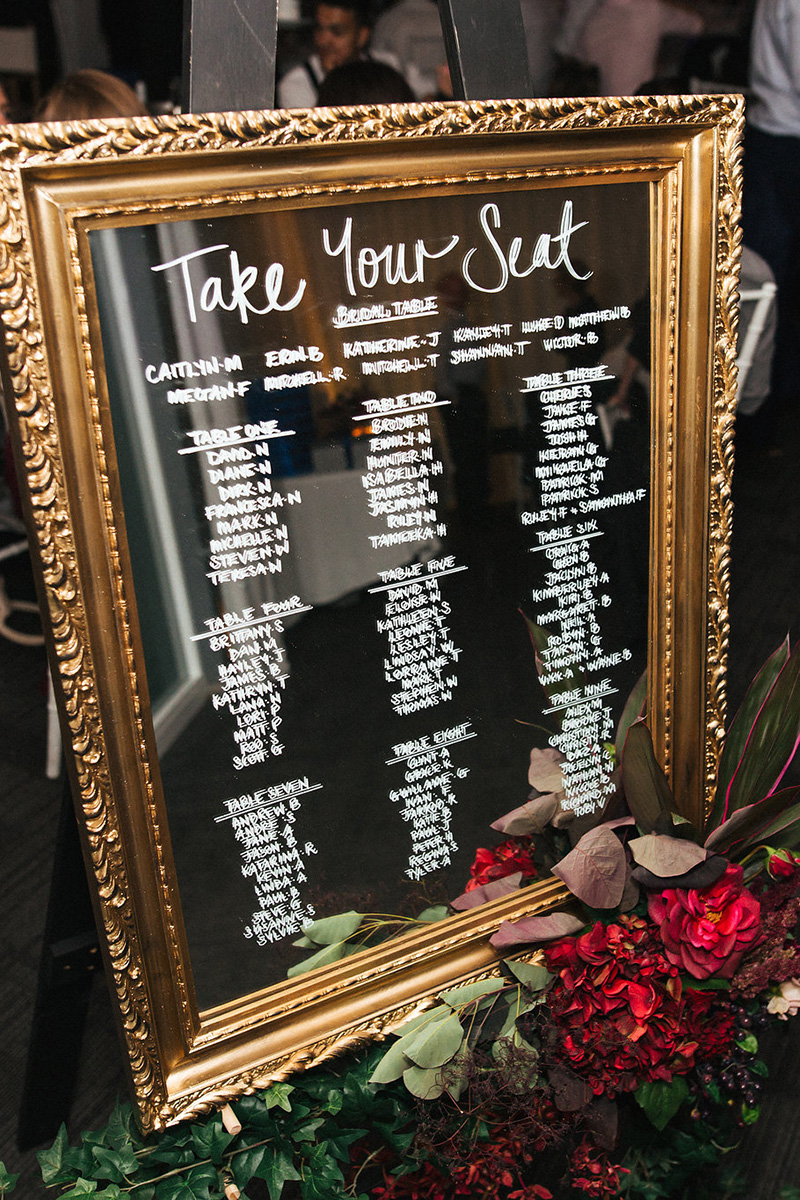 Take Your Seat
BRIDAL TABLE
CAITLYN·M ERIN·B KATHERINE·J KAYLEY·T LUKE·D MATTHEW·B
MEGAN·F MITCHELL·R MITCHELL·T SHANNAN·T VICTOR·B
TABLE ONE
DAVID·N
DIANE·N
DIRK·N
FRANCESCA·N
MARK·N
MICHELLE·N
STEVEN·W
TERESA·N
TABLE TWO
BRODIE·N
EMILY·N
HUNTER·N
ISABELLA·H
JAMES·N
JASMIN·H
RILEY·N
TAMEEKA·H
TABLE THREE
CHERIE·S
JAKE·F
JAMES·G
JOSH·H
KIERAN·G
MIKAELA·G
PATRICK·M
PATRICK·S
RILEY·F + SAMANTHA·F
TABLE FOUR
BRITTANY·S
DAN·M
HAYLEY·J
JAMES·B
KATHRYN·T
LANA·N
LORI·P
MATT·P
ROB·S
SCOTT·G
TABLE FIVE
DAVID·M
ELOISE·N
KATHLEEN·S
LEONIE·T
LESLEY·T
LINDSAY·W
LORRAINE·T
MARK·T
STEPHEN·W
THOMAS·N
TABLE SIX
CRAIG·A
JACLYN·B
KIMBERLEY·A
KIRI·B
MARGARET·B
NEIL·A
ROBYN·B
TARYN·G
TIMOTHY·A
+ WAYNE·B
TABLE SEVEN
ANDREW·B
JANE·A
JASON·B
KATARINA·R
KEVIN·A
LINDA·A
PAUL·B
STEVE·G
SUSANNE·S
SYLVIE·B
TABLE EIGHT
CLINT·A
GRACE·K
GUILLAME·G
IVAN·F
JARROD·K
KATE·B
PAUL·J
PETER·H
REGINA·S
TYLER·A
TABLE NINE
ALEX·M
BROOKE·J
CHRISTIAN·M
NATHAN·N
NICOLE·B
RICHARD·M
TOBY·V